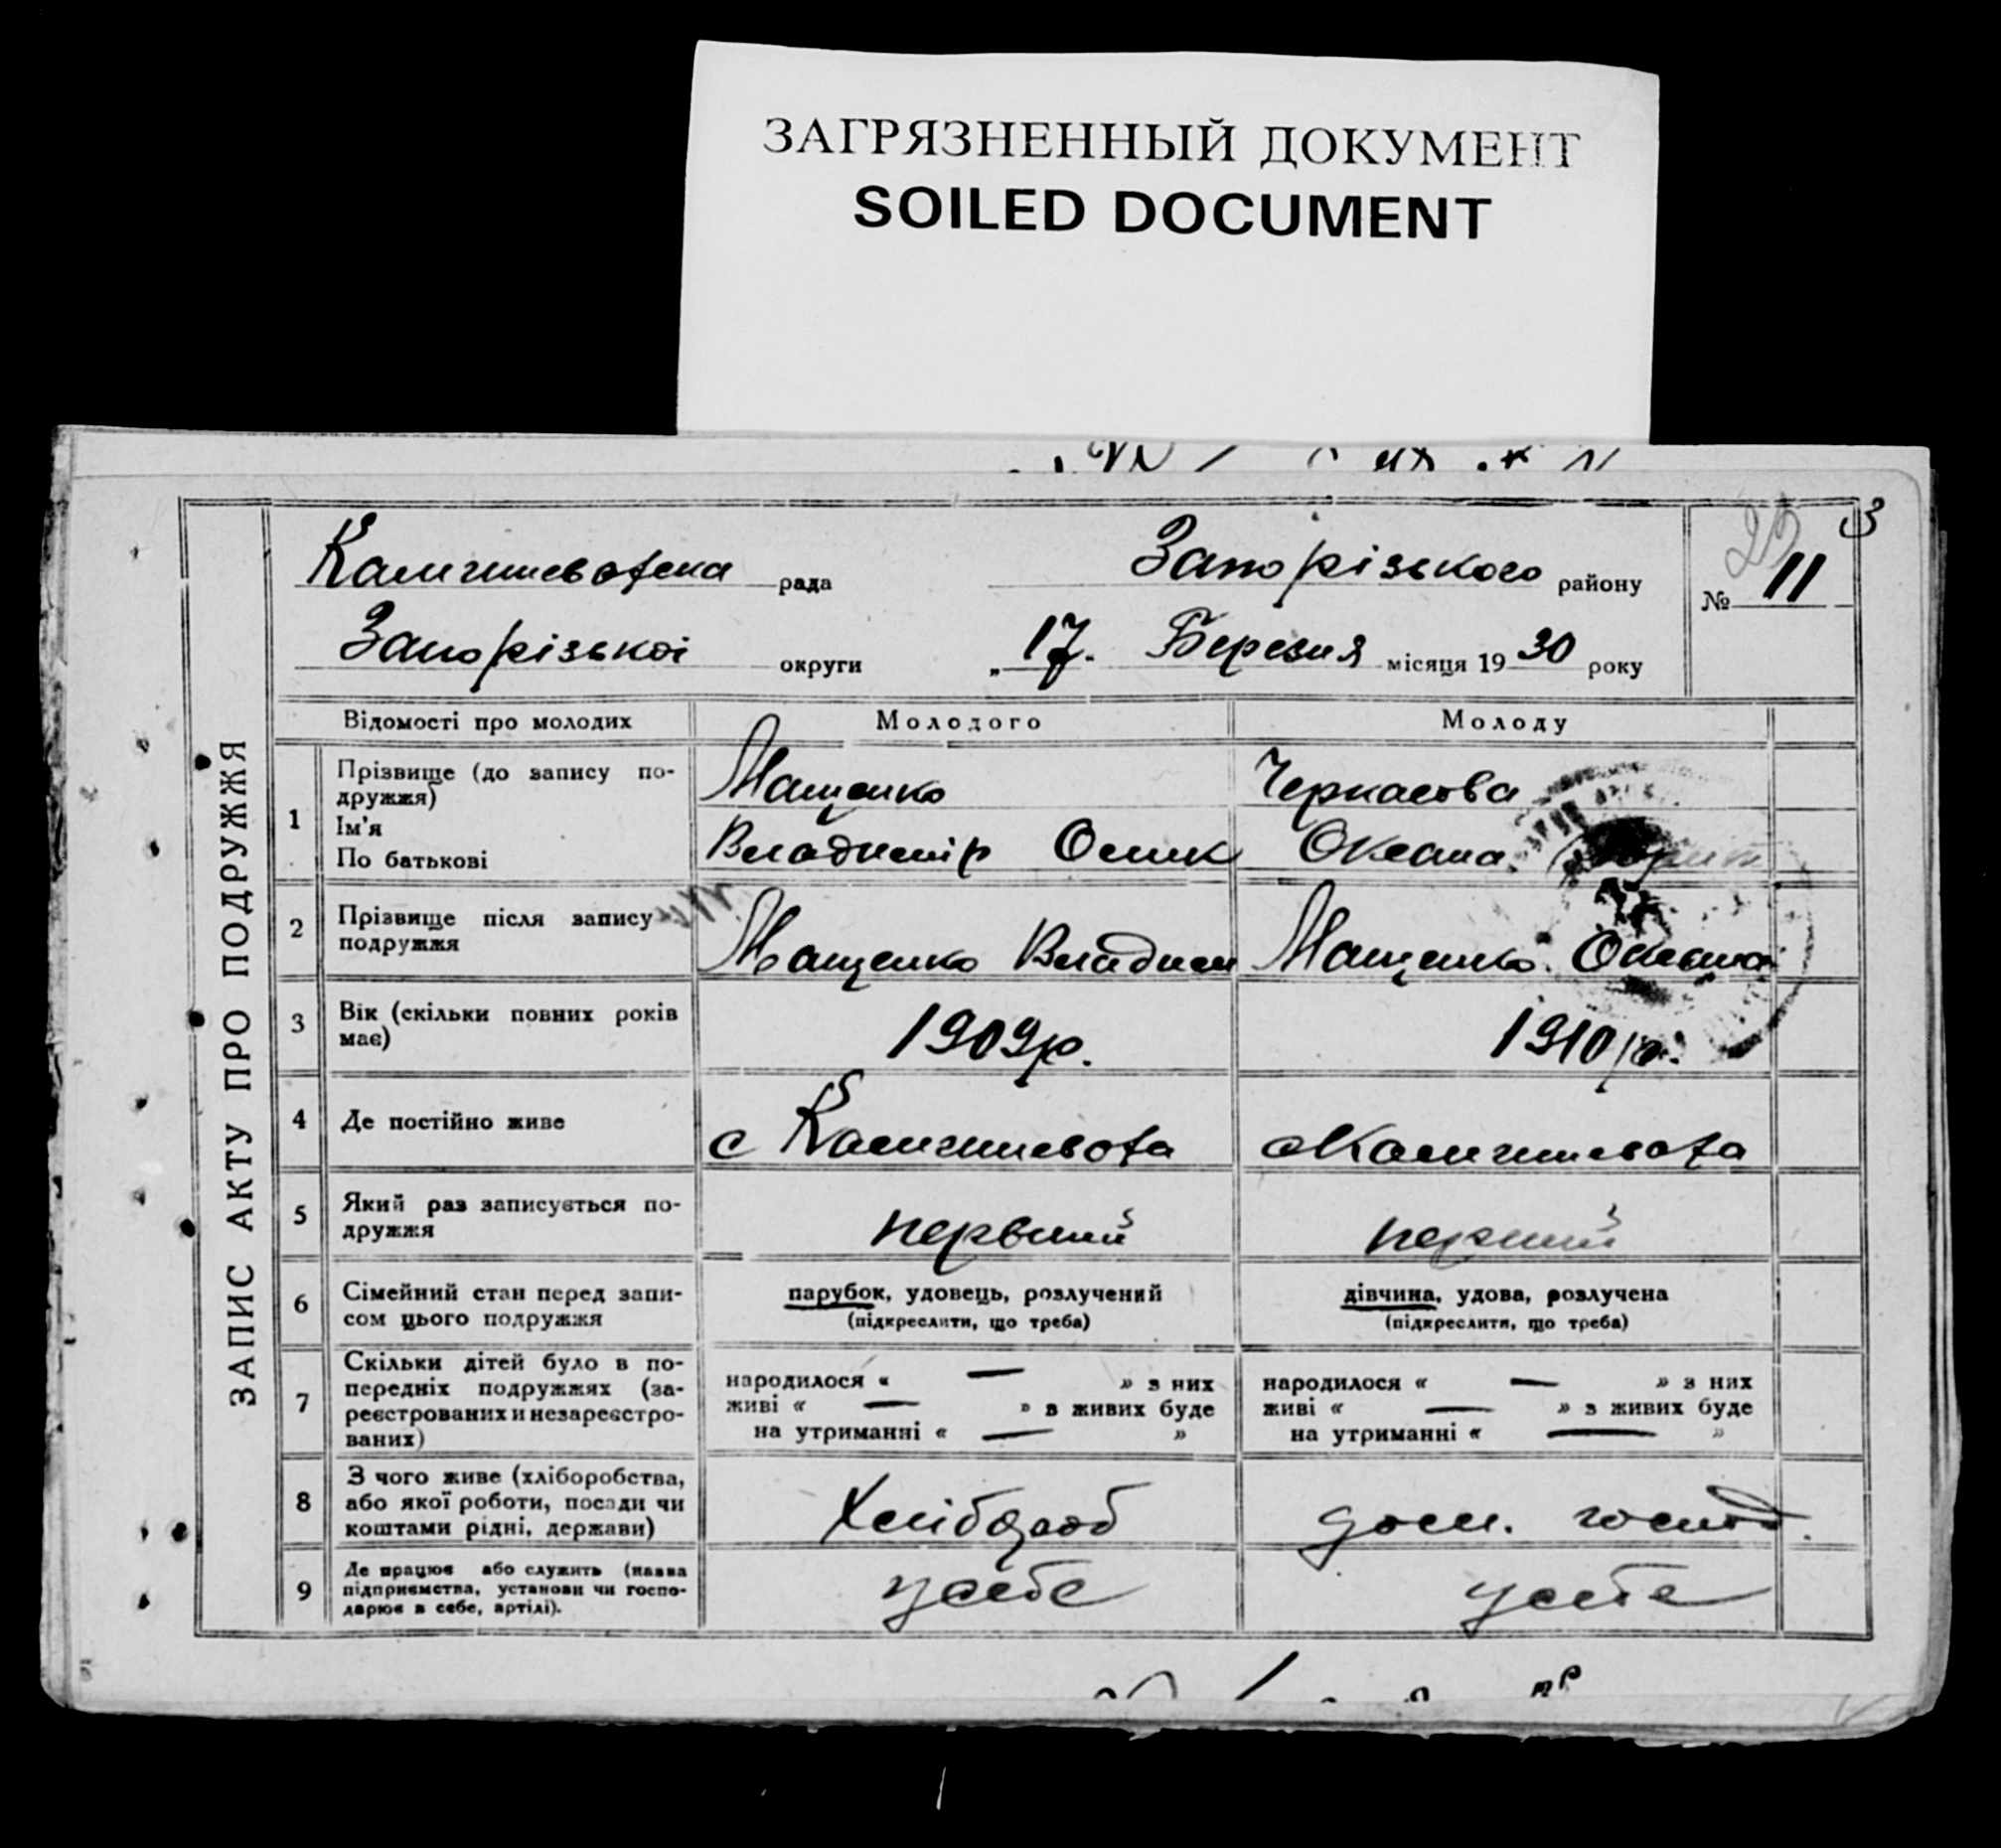 ЗАГРЯЗНЕННЫЙ ДОКУМЕНТ
SOILED DOCUMENT
3
25
Камишеватська рада Запорізького району № 11
Запорізької округи „ 17. Березня місяця 19 30 року
ЗАПИС АКТУ ПРО ПОДРУЖЖЯ
Відомості про молодих Молодого Молоду
1 Прізвище (до запису по-
дружжя) Мащенко Черкасова
Ім'я
По батькові Владимір Осик Оксана
2 Прізвище після запису
подружжя Мащенко Владим Мащенко Оксана
3 Вік (скільки повних років
має) 1909р. 1910р.
4 Де постійно живе с Камишевата с Камишевата
5 Який раз записується по-
дружжя первий перший
6 Сімейний стан перед запи-
сом цього подружжя
парубок, удовець, розлучений
(підкреслити, що треба)
дівчина, удова, розлучена
(підкреслити, що треба)
7 Скільки дітей було в по-
передніх подружжях (за-
реєстрованих и незареєстро-
ваних)
народилося « — » з них
живі « — » з живих буде
на утриманні « — »
народилося « — » з них
живі « — » з живих буде
на утриманні « — »
8 З чого живе (хліборобства,
або якої роботи, посади чи
коштами рідні, держави)
Хлібороб дом. господ.
9 Де працює або служить (назва
підприємства, установи чи госпо-
дарює в себе, артілі).
у себе у себе